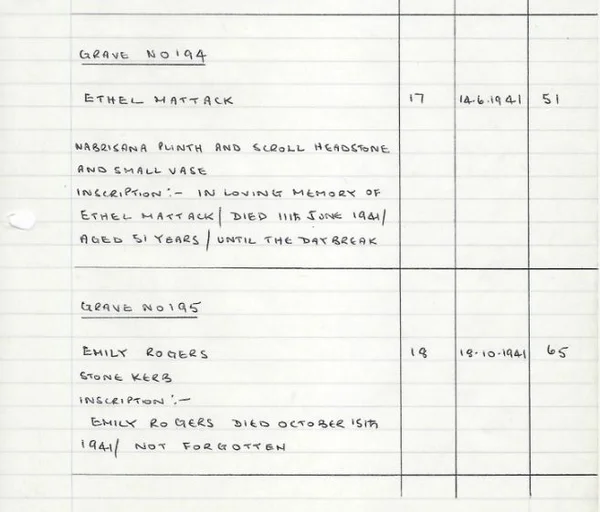 GRAVE NO 194
ETHEL MATTACK 17 14.6.1941 51
NABRISANA PLINTH AND SCROLL HEADSTONE
AND SMALL VASE
INSCRIPTION :- IN LOVING MEMORY OF
ETHEL MATTACK / DIED 11th JUNE 1941/
AGED 51 YEARS / UNTIL THE DAY BREAK
GRAVE NO 195
EMILY ROGERS 18 18.10.1941 65
STONE KERB
INSCRIPTION :-
EMILY ROGERS DIED OCTOBER 15th
1941/ NOT FORGOTTEN